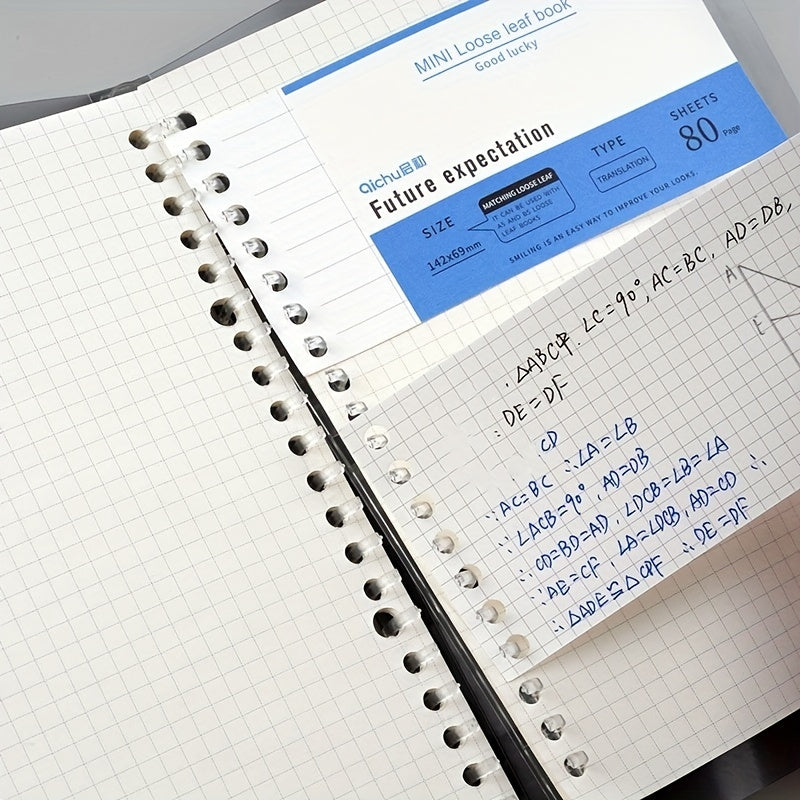 MINI Loose leaf book
Good lucky
aichu启初
Future expectation
SIZE
142x69mm
MATCHING LOOSE LEAF
IT CAN BE USED WITH
A5 AND B5 LOOSE
LEAF BOOKS
TYPE
TRANSLATION
SHEETS
80 Page
SMILING IS AN EASY WAY TO IMPROVE YOUR LOOKS.
△ABC中. ∠C=90°, AC=BC, AD=DB,
: DE=DF
A
E
CD
∵ AC=BC ∴∠A=∠B
∵ ∠ACB=90°, AD=DB
∴ CD=BD=AD, ∠DCB=∠B=∠A
∵ AE=CF, ∠A=∠DCB, AD=CD ∴
∴ △ADE≌△CDF ∴ DE=DF